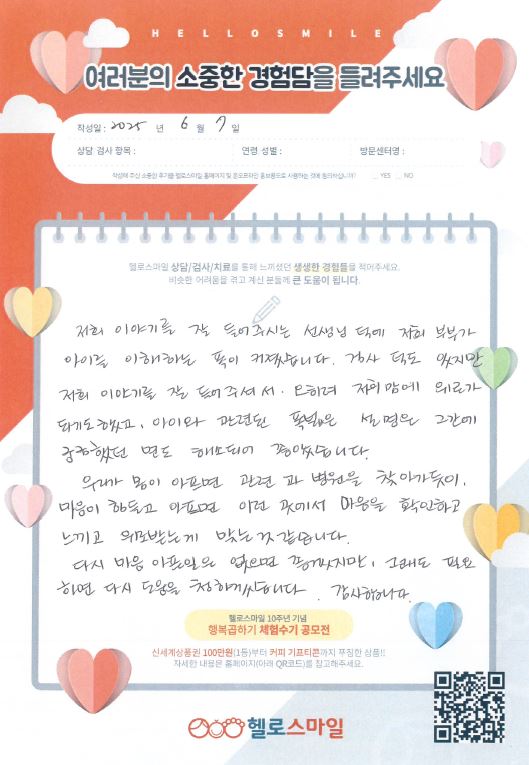 HELLOSMILE
여러분의 소중한 경험담을 들려주세요
작성일 : 2025 년 6 월 7 일
상담 검사 항목 : 연령 성별 : 방문센터명 :
작성해 주신 소중한 후기를 헬로스마일 홈페이지 및 온오프라인 홍보용으로 사용하는 것에 동의하십니까? YES NO
헬로스마일 상담/검사/치료를 통해 느끼셨던 생생한 경험들을 적어주세요.
비슷한 어려움을 겪고 계신 분들께 큰 도움이 됩니다.
저희 이야기를 잘 들어주시는 선생님 덕에 저희 부부가
아이를 이해하는 폭이 커졌습니다. 검사 덕도 있지만
저희 이야기를 잘 들어주셔서. 오히려 저희 맘에 위로가
되기도 했고, 아이와 관련된 폭넓은 설명은 그간에
궁금했던 면도 해소되어 좋았습니다.
우리가 몸이 아프면 관련 과 병원을 찾아가듯이,
마음이 힘들고 아프면 이런 곳에서 마음을 확인하고
느끼고 위로받는게 맞는것 같습니다.
다시 마음 아픈일은 없으면 좋겠지만, 그래도 필요
하면 다시 도움을 청하겠습니다. 감사합니다.
헬로스마일 10주년 기념
행복곱하기 체험수기 공모전
신세계상품권 100만원(1등)부터 커피 기프티콘까지 푸짐한 상품!!
자세한 내용은 홈페이지(아래 QR코드)를 참고해주세요.
헬로스마일